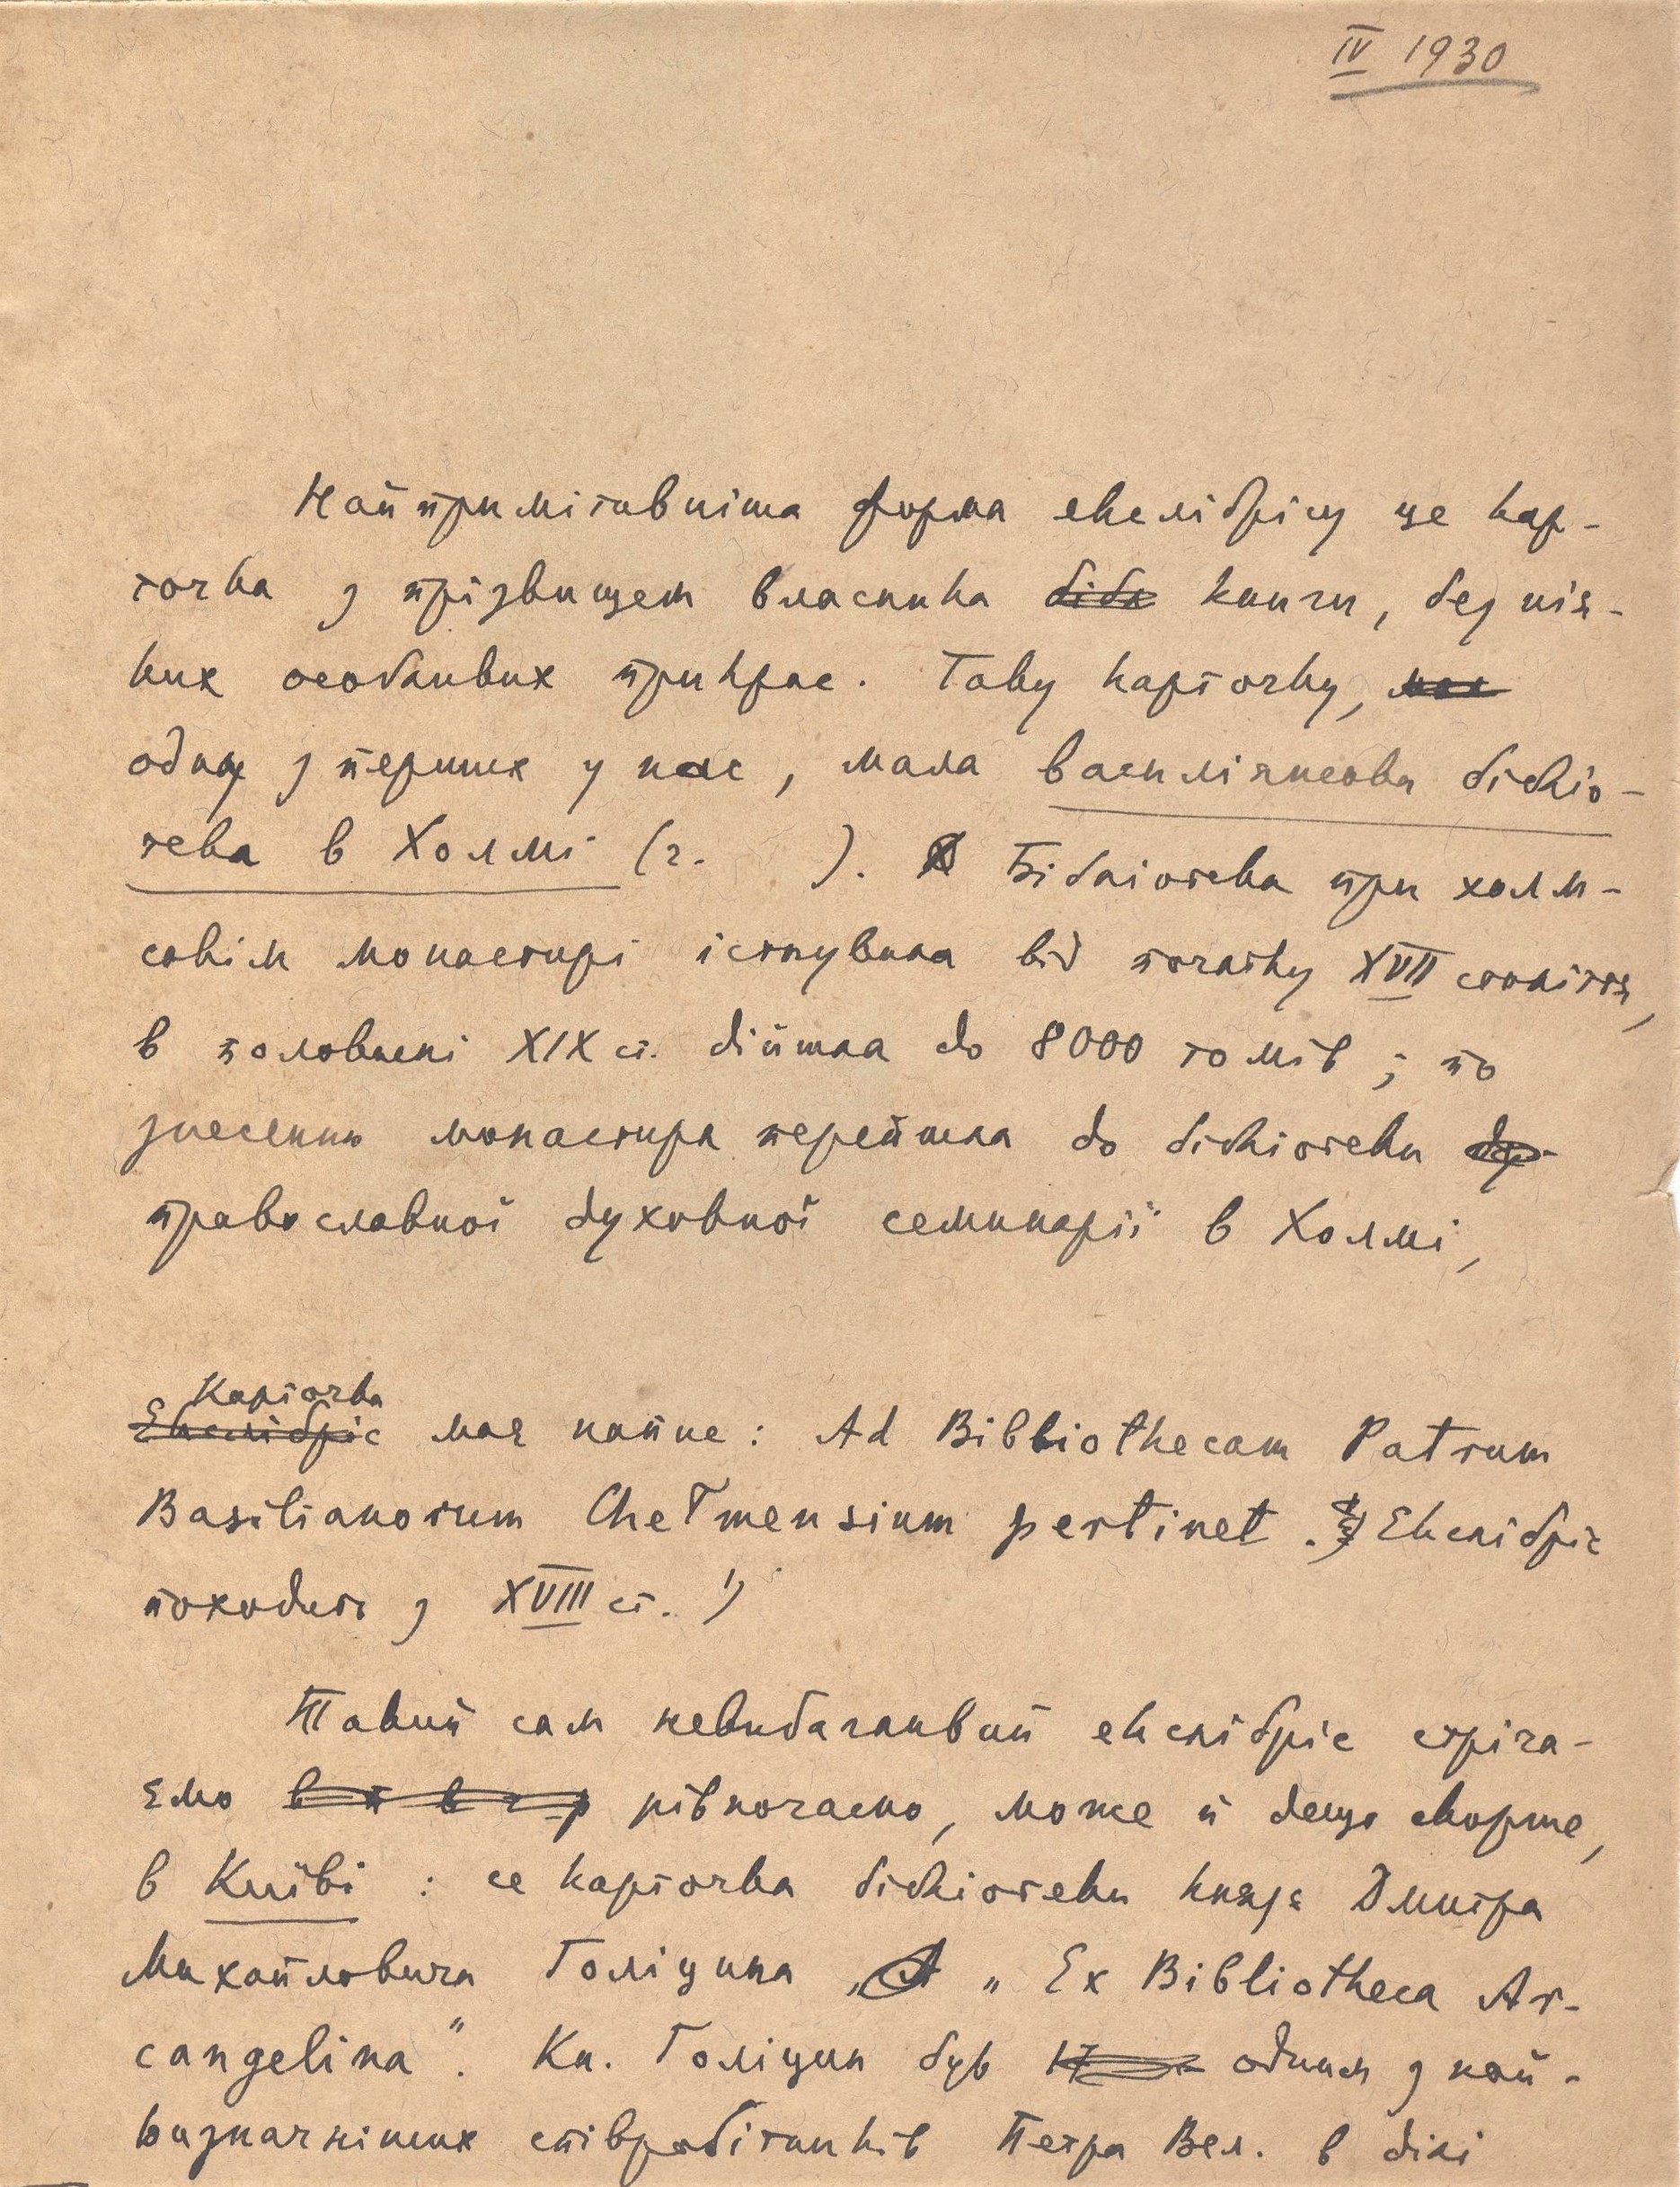 IV 1930
Найпримітивніша форма екслібрісу це кар-
точка з прізвищем власника бібл книги, без нія-
ких особливих прикрас. Таку карточку, мал
одну з перших у нас, мала василіянська бібліо-
тека в Холмі (г. ). Бібліотека при холм-
ськім монастирі існувала від початку XVII століття,
в половині XIX ст. дійшла до 8000 томів; по
знесенню монастиря перейшла до бібліотеки ду
православної духовної семинарії в Холмі,
Карточка
Екслібріс має напис: Ad Bibliothecam Patrum
Basilianorum Chełmensium pertinet. Екслібріс
походить з XVIII ст. 1)
Такий сам невибагливий екслібріс стріча-
ємо рівночасно, може й дещо скорше,
в Київі : се карточка бібліотеки князя Дмитра
Михайловича Голіцина „ Ex Bibliotheca Ar-
cangelina". Кн. Голіцин був одним з най-
визначніших співробітників Петра Вел. в ділі